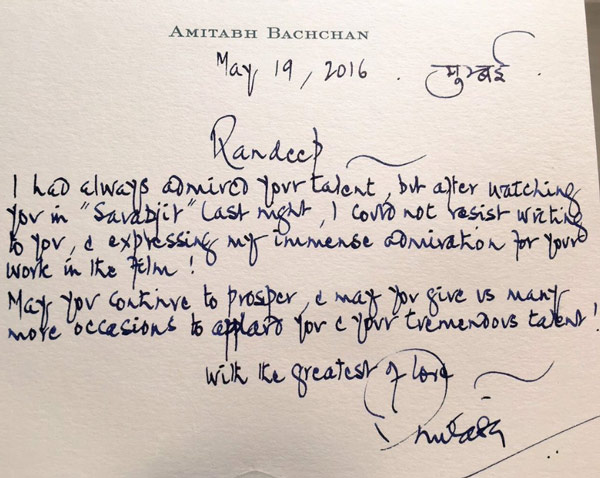 AMITABH BACHCHAN
May 19, 2016. मुम्बई.
Randeep
I had always admired your talent, but after watching
you in "Sarabjit" last night, I could not resist writing
to you, & expressing my immense admiration for your
work in the film!
May you continue to prosper, & may you give us many
more occasions to applaud you & your tremendous talent!
with the greatest of love